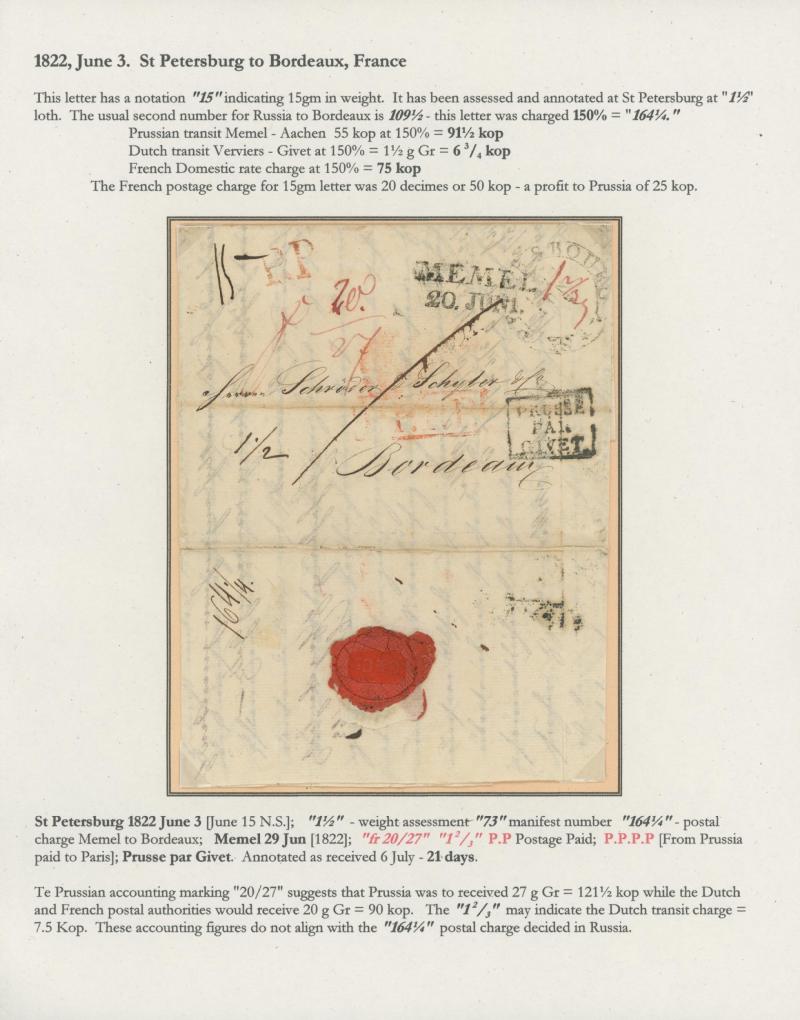 1822, June 3. St Petersburg to Bordeaux, France
This letter has a notation "15" indicating 15gm in weight. It has been assessed and annotated at St Petersburg at "1½"
loth. The usual second number for Russia to Bordeaux is 109½ - this letter was charged 150% = "164¼."
Prussian transit Memel - Aachen 55 kop at 150% = 91½ kop
Dutch transit Verviers - Givet at 150% = 1½ g Gr = 6 3/4 kop
French Domestic rate charge at 150% = 75 kop
The French postage charge for 15gm letter was 20 decimes or 50 kop - a profit to Prussia of 25 kop.
15
P.P
20
27
MEMEL
20. JUNI.
1 2/3
Herren Schröder & Schyler & Co
PRUSSE
PAR
GIVET.
1 1/2
Bordeaux
164 1/4.
St Petersburg 1822 June 3 [June 15 N.S.]; "1½" - weight assessment "73" manifest number "164¼" - postal
charge Memel to Bordeaux; Memel 29 Jun [1822]; "fr 20/27" "1 2/3" P.P Postage Paid; P.P.P.P [From Prussia
paid to Paris]; Prusse par Givet. Annotated as received 6 July - 21 days.
Te Prussian accounting marking "20/27" suggests that Prussia was to received 27 g Gr = 121½ kop while the Dutch
and French postal authorities would receive 20 g Gr = 90 kop. The "1 2/3" may indicate the Dutch transit charge =
7.5 Kop. These accounting figures do not align with the "164¼" postal charge decided in Russia.